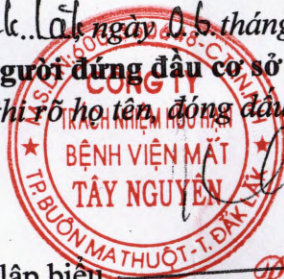 Lắk ngày 06 tháng
gười đứng đầu cơ sở
hi rõ họ tên, đóng dấu
CÔNG TY
TRÁCH NHIỆM HỮU HẠN
BỆNH VIỆN MẮT
TÂY NGUYÊN
TP.BUÔN MA THUỘT-T.ĐẮK LẮK
lập biểu